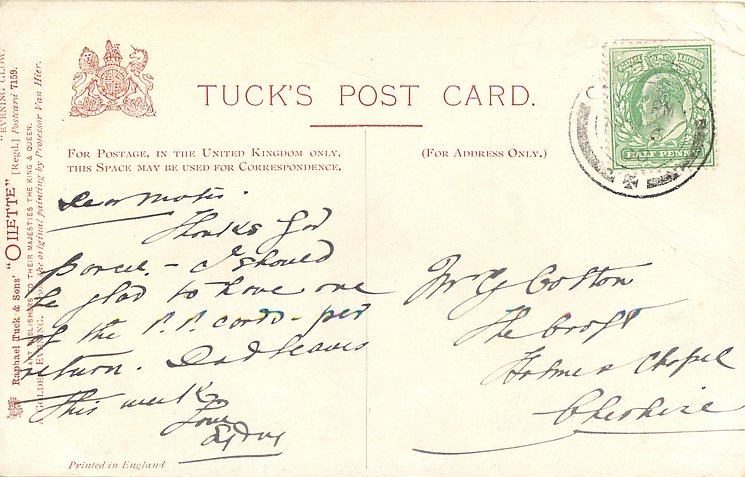 TUCK'S POST CARD.
FOR POSTAGE, IN THE UNITED KINGDOM ONLY,
THIS SPACE MAY BE USED FOR CORRESPONDENCE.
(FOR ADDRESS ONLY.)
HALF PENNY
"EVENING GLOW."
Raphael Tuck & Sons' "OILETTE" [Regd.] Postcard 7159.
ART PUBLISHERS TO THEIR MAJESTIES THE KING & QUEEN.
A GOLDEN EVENING. From the original painting by Professor Van Hier.
Dear Mater
Thanks for
parcel. – I should
be glad to have one
of the P.P. cards – per
return. Dad leaves
this week
Love
Mr G Colton
The Croft
Holmes Chapel
Cheshire
Printed in England